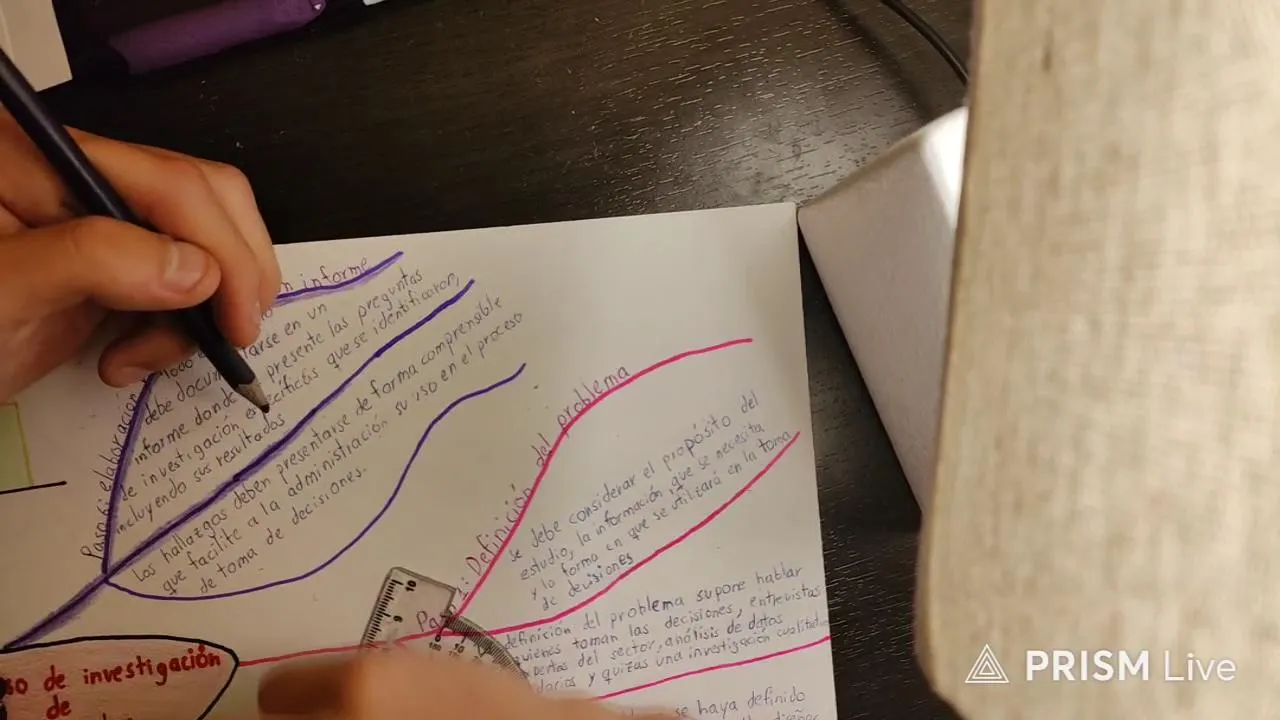 n informe
Paso 6: elaboración
debe docum arse en un
informe donde presente las preguntas
de investigación específicas que se identificaron,
incluyendo sus resultados
Los hallazgos deben presentarse de forma comprensible
que facilite a la administración su uso en el proceso
de toma de decisiones.
Paso 1: Definición del problema
se debe considerar el propósito del
estudio, la información que se necesita
y la forma en que se utilizará en la toma
de decisiones
definición del problema supone hablar
quienes toman las decisiones, entrevistas
pertos del sector, análisis de datos
darios y quizas una investigación cualitativa
se haya definido
so de investigación
de
PRISM Live